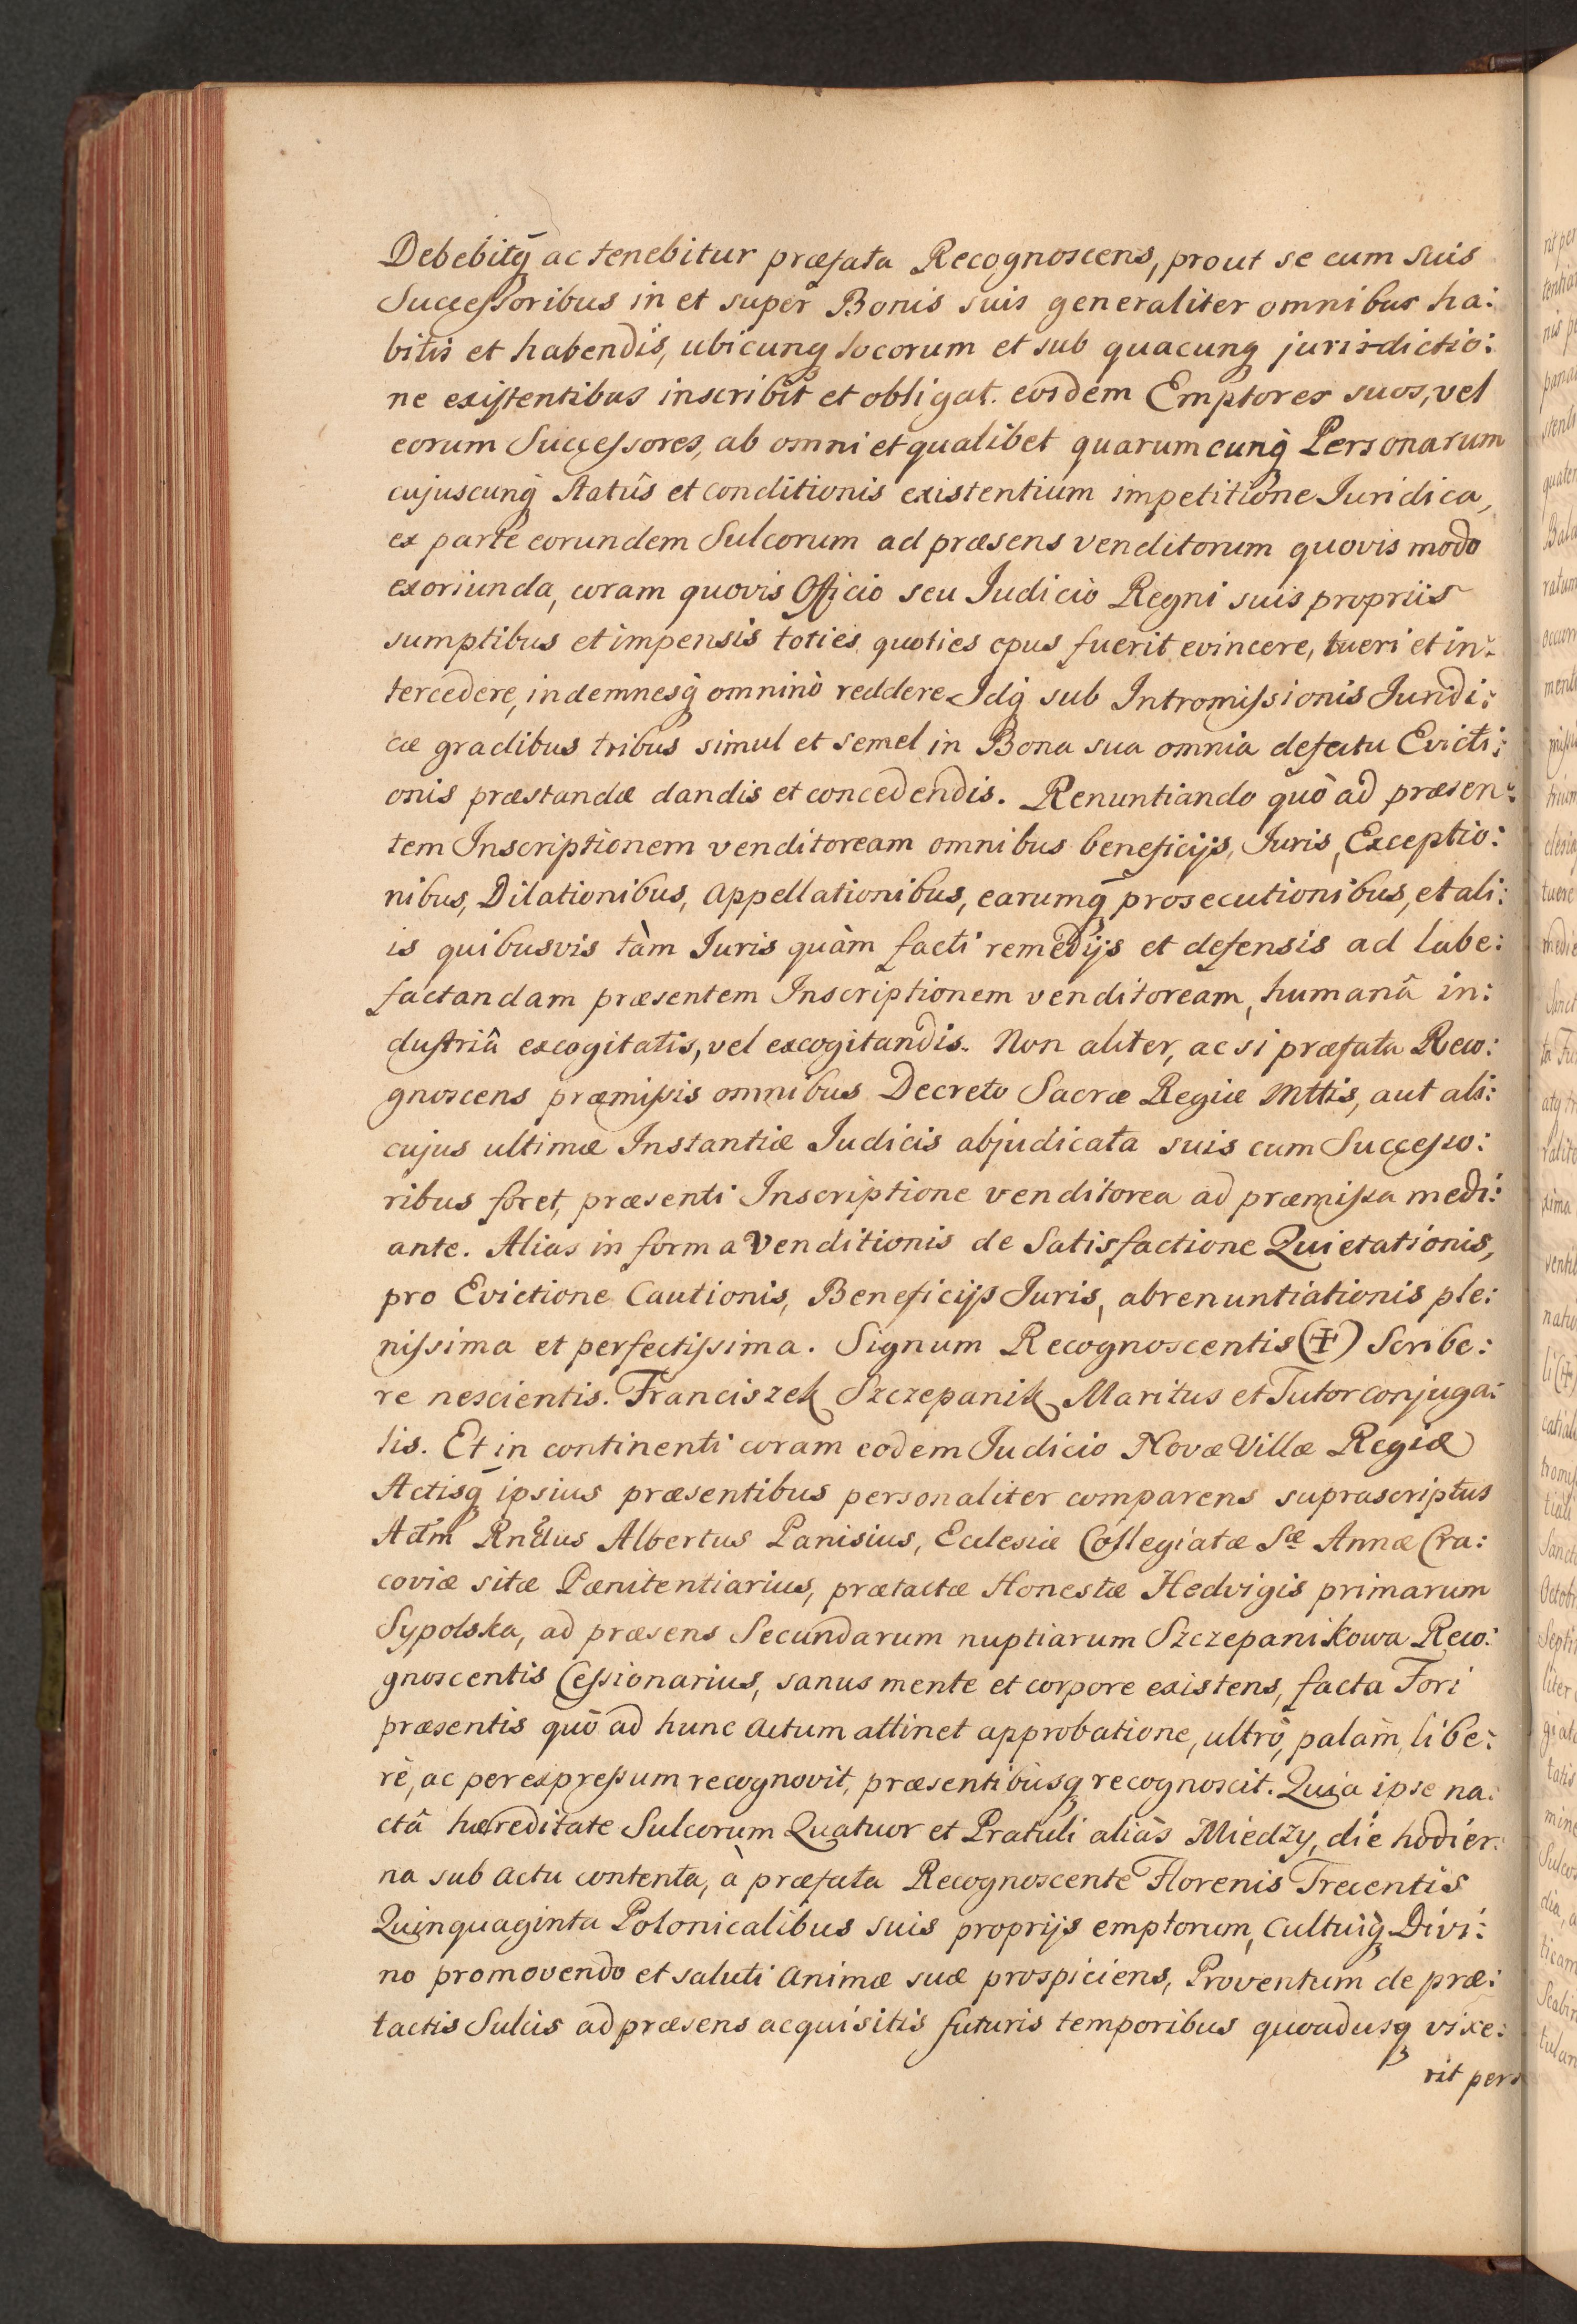 Debebitq̃ ac tenebitur præfata Recognoscens, prout se cum suis
Successoribus in et super Bonis suis generaliter omnibus ha:
bitis et habendis, ubicunq locorum et sub quacunq jurisdictio:
ne existentibus inscribit et obligat. eosdem Emptores suos, vel
eorum Successores, ab omni et qualibet quarumcunq̃ Personarum
cujuscunq̃ Statûs et conditionis existentium impetitione Iuridica,
ex parte eorundem Sulcorum ad præsens venditorum quovis modo
exoriunda, coram quovis Officio seu Iudicio Regni suis propriis
sumptibus et impensis toties quoties opus fuerit evincere, tueri et in:
tercedere, indemnesq̃ omninò reddere Idq̃ sub Intromissionis Iuridi:
cæ gradibus tribus simul et semel in Bona sua omnia defectu Evicti:
onis præstandæ dandis et concedendis. Renuntiando quò ad præsen:
tem Inscriptionem venditoream omnibus beneficijs, Iuris, Exceptio:
nibus, Dilationibus, Appellationibus, earumq̃ prosecutionibus, et ali:
is quibusvis tàm Iuris quàm facti remedijs et defensis ad labe:
factandam præsentem Inscriptionem venditoream, humanâ in:
dustriâ excogitatis, vel excogitandis. Non aliter, ac si præfata Reco:
gnoscens præmissis omnibus Decreto Sacræ Regiæ Mttis, aut ali:
cujus ultimæ Instantiæ Iudicis abjudicata suis cum Successo:
ribus foret, præsenti Inscriptione venditorea ad præmissa medi:
ante. Alias in forma Venditionis de Satisfactione Quietationis,
pro Evictione Cautionis, Beneficijs Iuris, abrenuntiationis ple:
nissima et perfectissima. Signum Recognoscentis (✠) Scribe:
re nescientis. Franciszek Szczepanik Maritus et Tutor conjuga:
lis. Et in continenti coram eodem Iudicio Novæ Villæ Regiæ
Actisq̃ ipsius præsentibus personaliter comparens suprascriptus
Adm̃ Rndus Albertus Panisius, Ecclesiæ Collegiatæ Sæ Annæ Cra:
coviæ sitæ Pænitentiarius, prætactæ Honestæ Hedvigis primarum
Sypolska, ad præsens Secundarum nuptiarum Szczepanikowa Reco:
gnoscentis Cessionarius, sanus mente et corpore existens, facta Fori
præsentis quò ad hunc Actum attinet approbatione, ultrò, palàm, libe:
rè, ac per expressum recognovit, præsentibusq recognoscit. Quia ipse na:
ctâ hæreditate Sulcorum Quatuor et Pratuli aliàs Miedzy, die hodier:
na sub Actu contenta, à præfata Recognoscente Florenis Trecentis
Quinquaginta Polonicalibus suis proprijs emptorum, Cultuiq̃ Divi:
no promovendo et saluti Animæ suæ prospiciens, Proventum de præ:
tactis Sulcis ad præsens acquisitis futuris temporibus quoadusq vixe:
rit pers